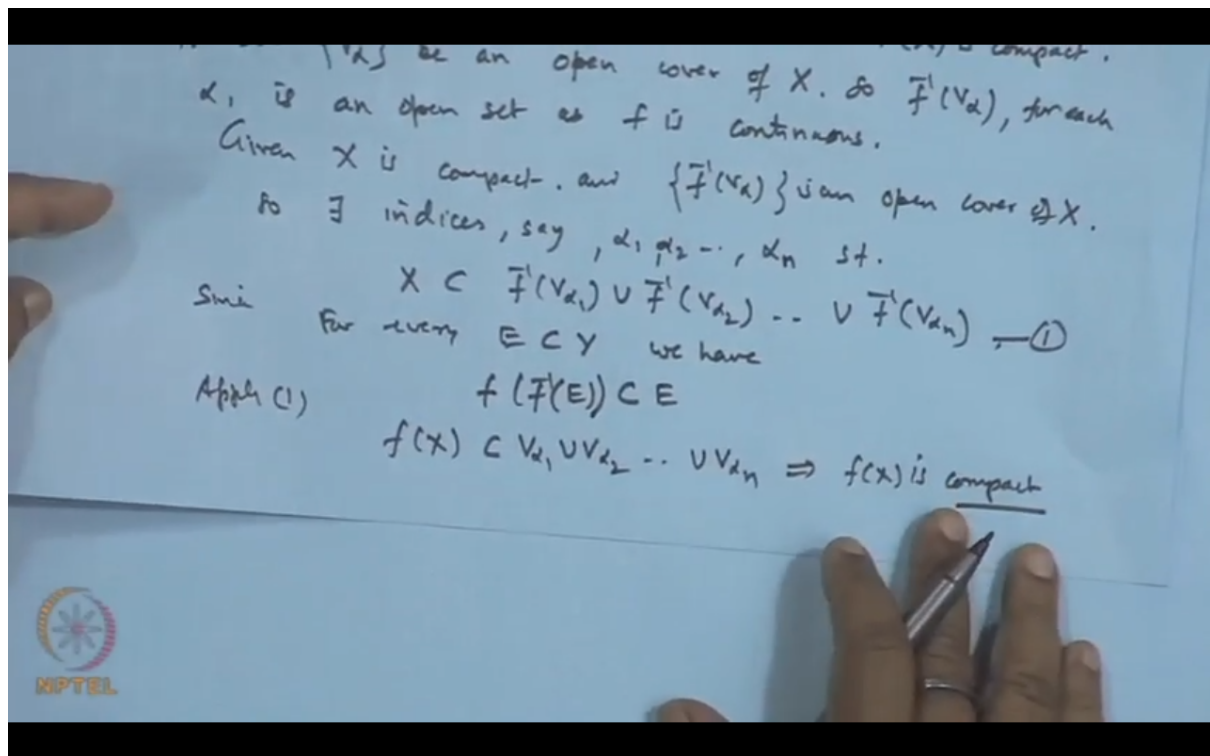 {Vα} be an open cover of X. So f̄¹(Vα), for each
α, is an open set as f is continuous.
Given X is compact. and {f̄¹(Vα)} is an open cover of X.
So ∃ indices, say, α₁, α₂ --, αn st.
X ⊂ f̄¹(Vα₁) ∪ f̄¹(Vα₂) -- ∪ f̄¹(Vαn), —①
Sinc For every E ⊂ Y we have
Apply (1) f(f̄¹(E)) ⊂ E
f(X) ⊂ Vα₁ ∪ Vα₂ -- ∪ Vαn ⇒ f(X) is compact
NPTEL